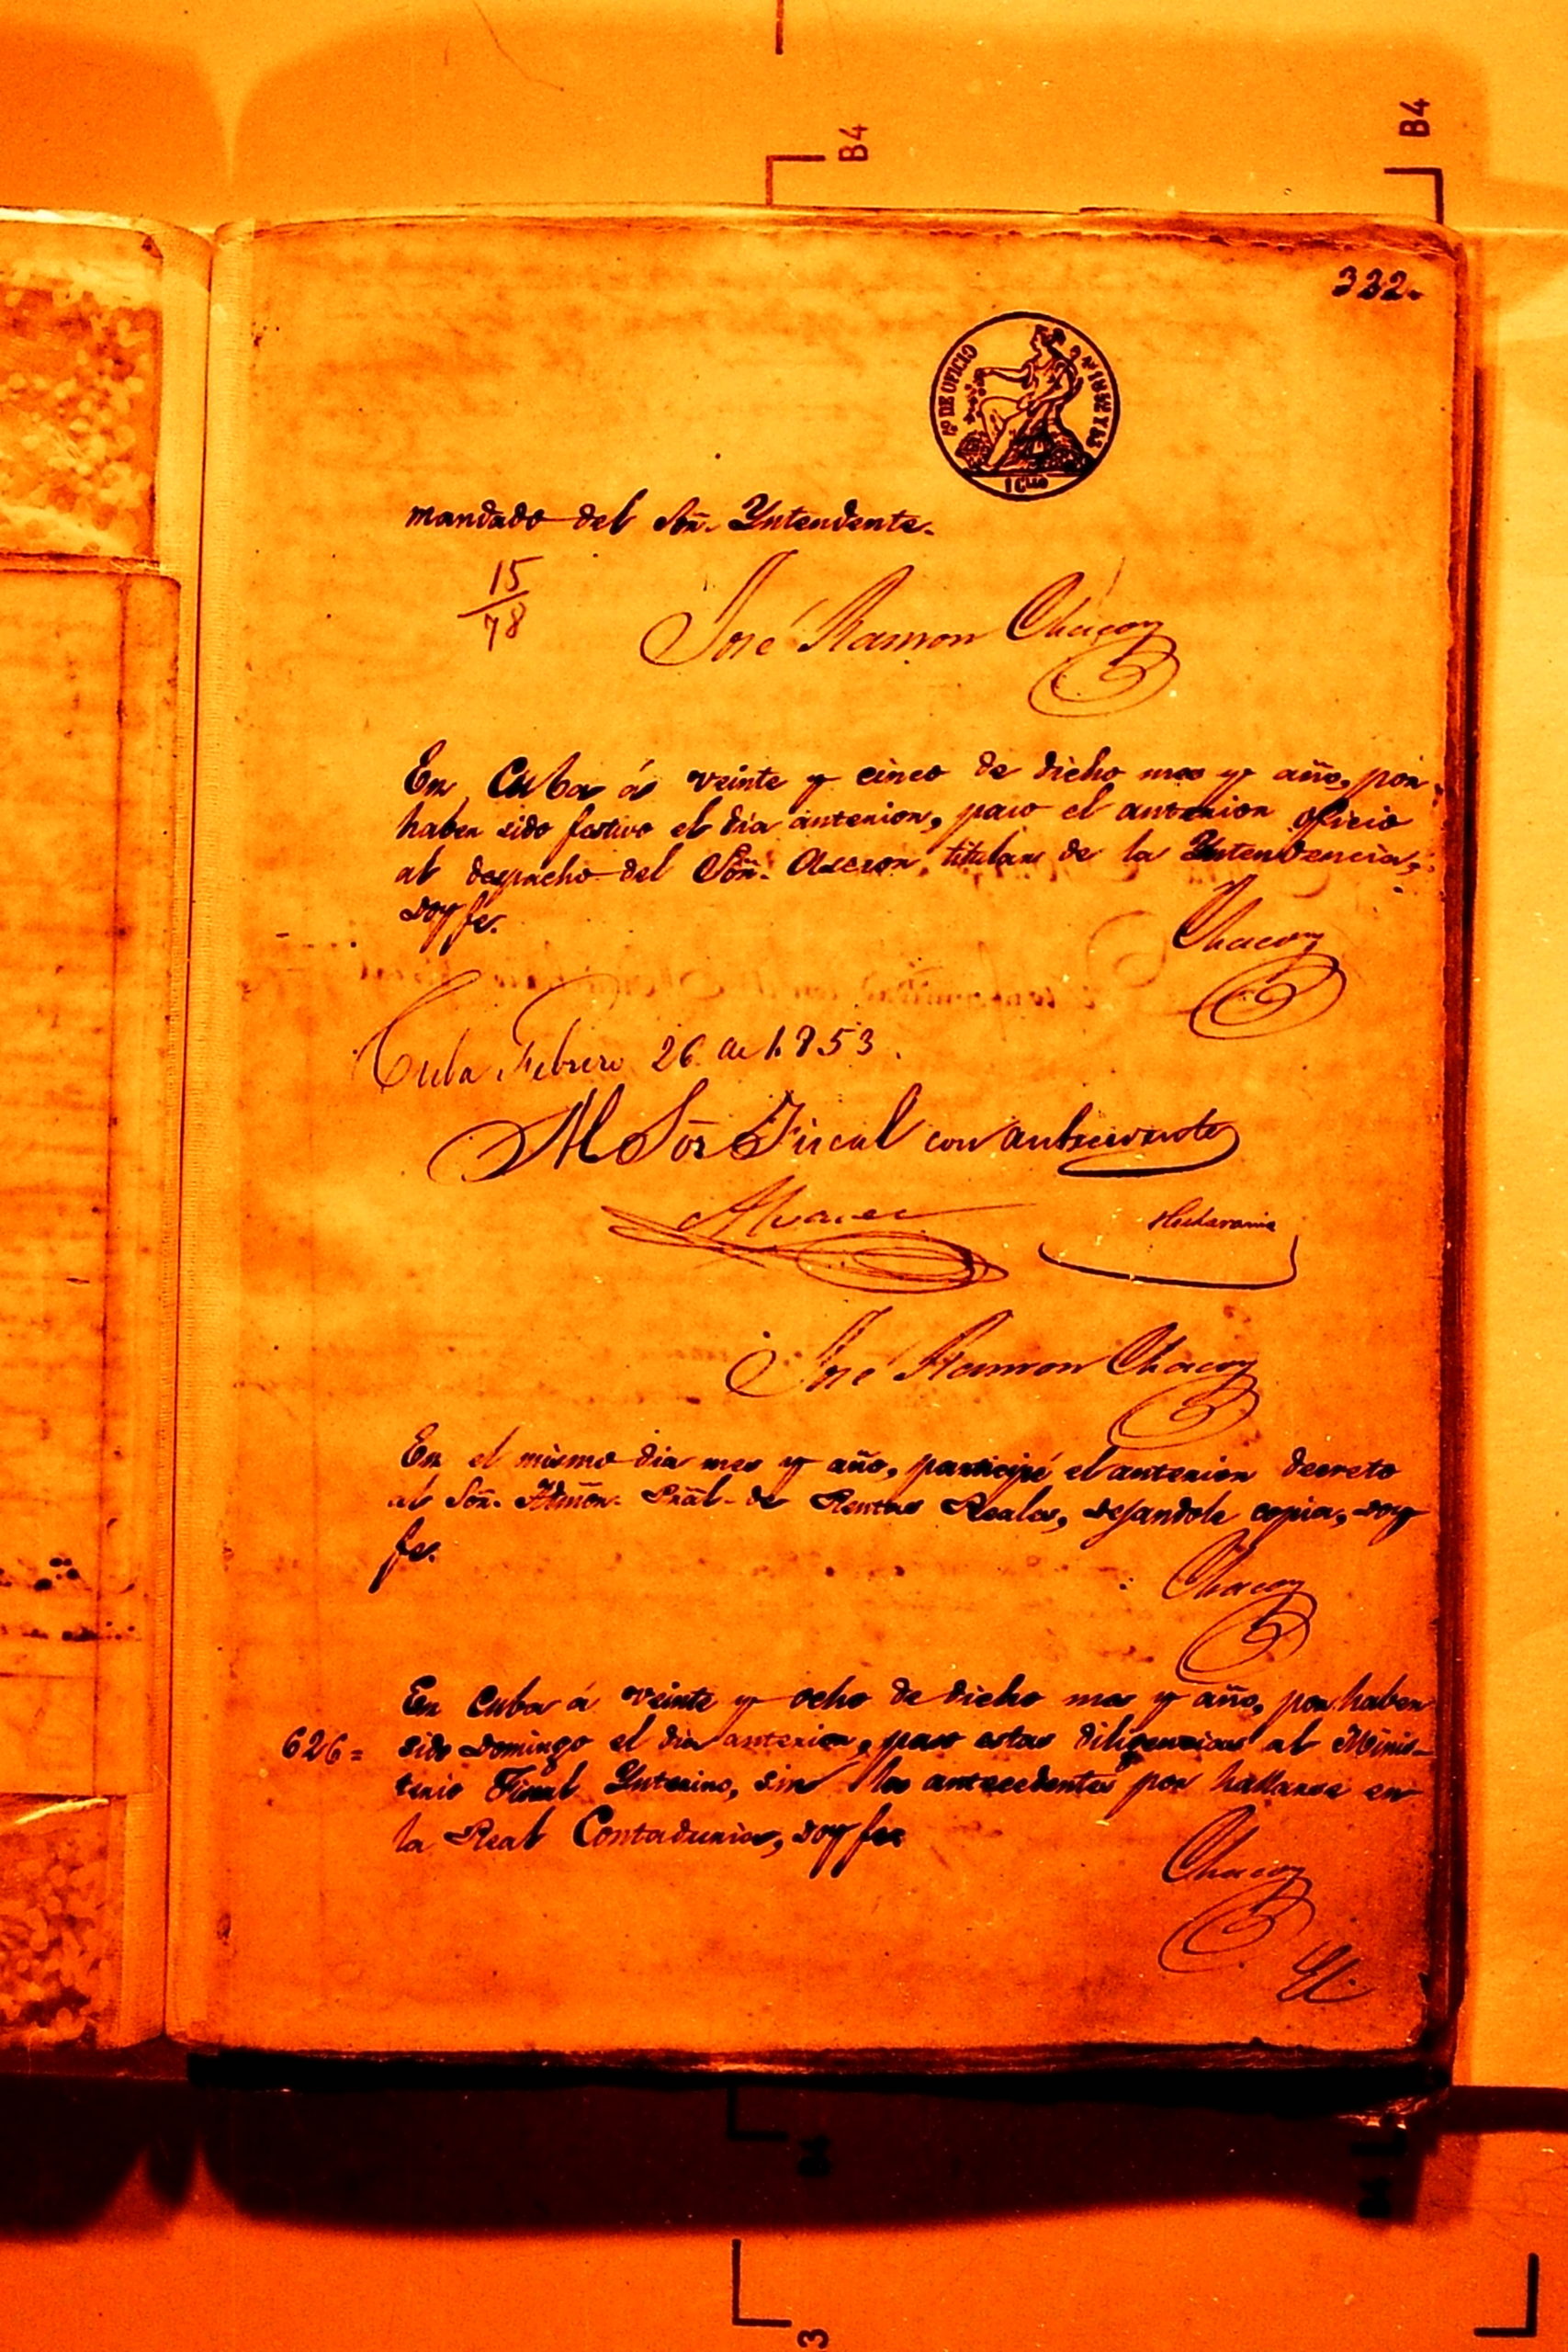 B4
B4
332.
Sº DE OFICIO
1852 Y 53
mandado del Sõr. Yntendente.
15
78
José Ramon Chacon
En Cuba á veinte y cinco de dicho mes y año, por
haber sido festivo el dia anterior, paso el anterior oficio
al despacho del Sõr. Asesor titular de la Yntendencia,
doy fe.
Chacon
Cuba Febrero 26 de 1853.
Al Sõr Fiscal con
Alvarez
José Ramon Chacon
En el mismo dia mes y año, participé el anterior decreto
al Sõr. Admõr. Prãl. de Rentas Reales, dejandole copia, doy
fe.
Chacon
En Cuba á veinte y ocho de dicho mes y año, por haber
626= sido Domingo el dia anterior, paso estas diligencias al Minis-
terio Fiscal Ynterino, sin los antecedentes por hallarse en
la Real Contaduria, doy fe=
Chacon
B4
3